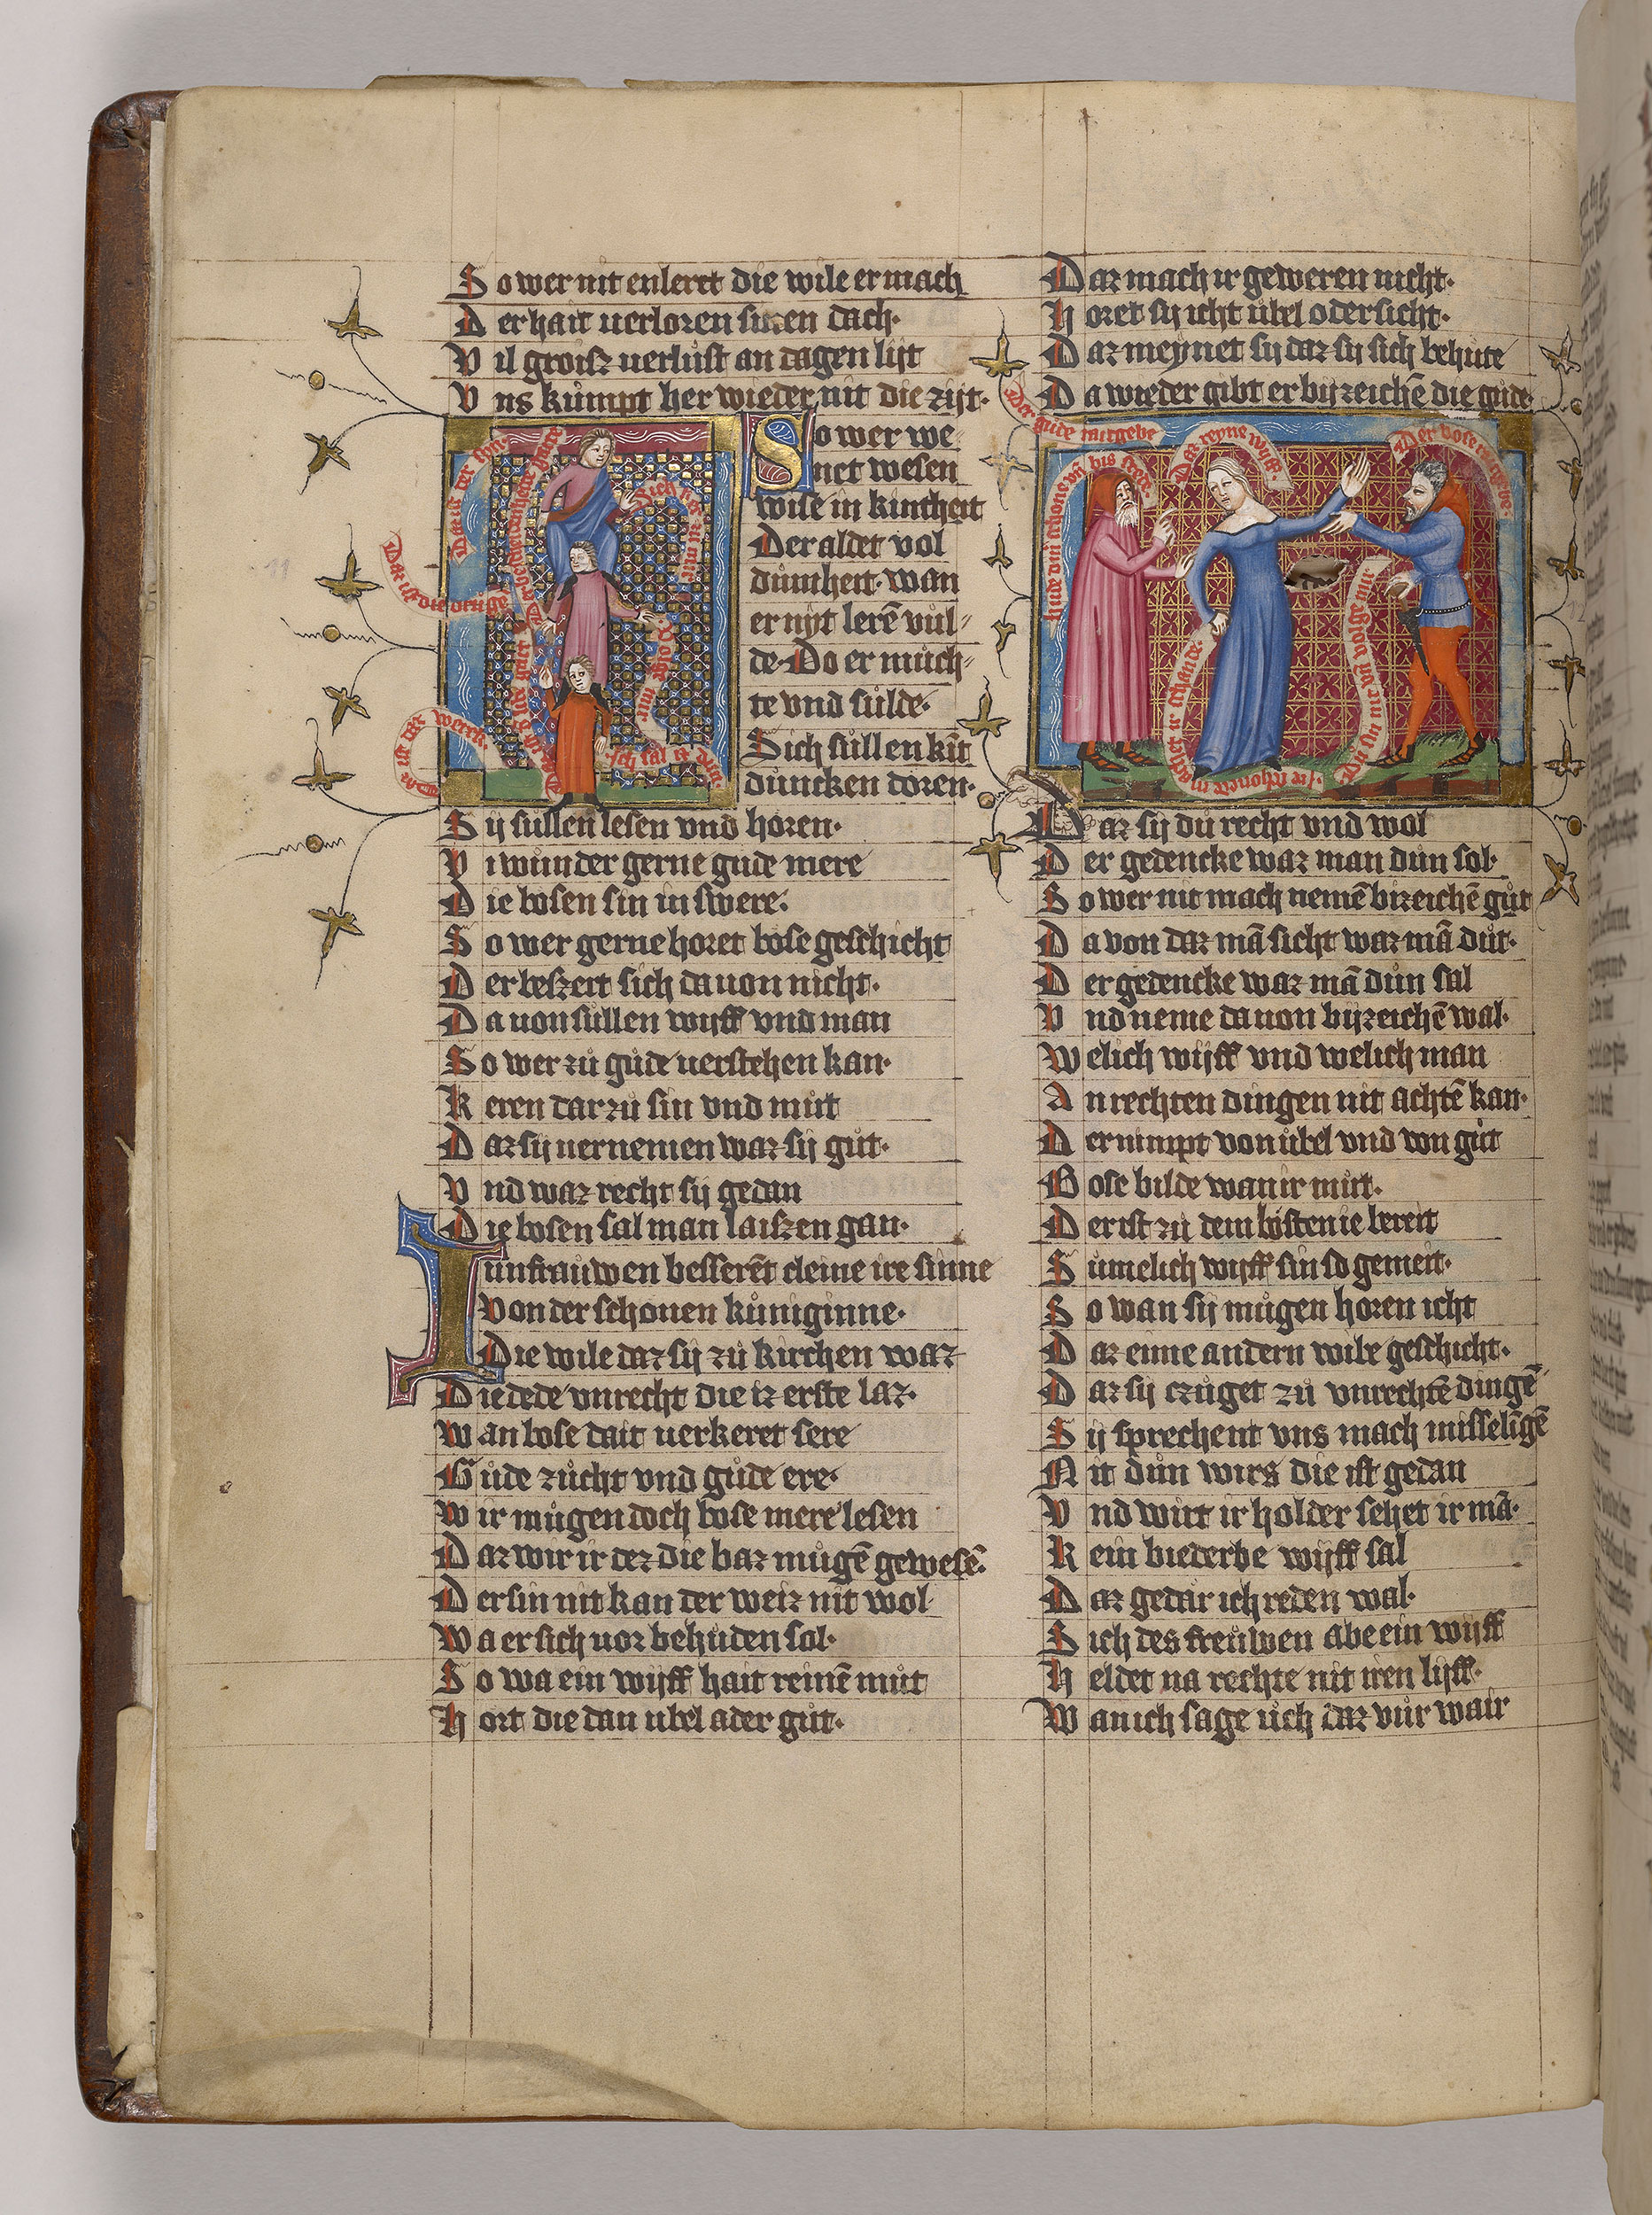 So wer nit enleret die wile er mach
Der hait uerloren sinen dach·
Vil groisz uerlust an dagen lijt
Vns kůmpt her wieder nit die zijt·
So wer we
net wesen
wise in kintheit
Der aldet vol
důmheit· wan
er nÿt lerē vůl
de· Do er můch
te vnd sůlde·
Sich sůllen kīt
důncken doren·
Sij sůllen lesen vnd horen·
Vi wůnder gerne gude mere
Die bosen sin in swere·
So wer gerne horet bose geschicht
Der beszert sich dauon nicht·
Da uon sůllen wijff vnd man
So wer zů gůde uerstehen kan·
Keren dar zů sin vnd můt
Daz sij uernemen waz sij gůt·
Vnd waz recht sij gedan
Die bosen sal man laiszen gan·
Junfrauwen besserēt cleine ire sinne
Von der schonen kůniginne·
Die wile daz sij zů kirchen waz
Die dede vnrecht die iz erste laz·
Wan bose dait uerkeret sere
Gůde zůcht vnd gůde ere·
Wir můgen doch bose mere lesen
Daz wir ir dez die baz můgē gewesē·
Der sin nit kan der weiz nit wol
Wa er sich uor behuden sol·
So wa ein wijff hait reinē můt
Hort die dan ubel ader gůt·
Daz mach ir geweren nicht·
Horet sij icht ůbel oder sicht·
Daz meynet sij daz sij sich behute
Da wieder gibt er bijzeichē die gude
Daz sij du recht vnd wol
Der gedencke waz man dun sol·
So wer nit mach nemē bizeichē gůt
Da von daz mā sicht waz mā důt·
Der gedencke waz mā důn sal
Vnd neme dauon bijzeichē wal·
Welich wijff vnd welich man
An rechten dingen nit achtē kan·
Der nimpt von ůbel vnd von gůt
Bose bilde wan ir můt·
Der ist zů dem bosten ie bereit
Sůmelich wijff sin so gemeit·
So wan sij můgen horen icht
Daz eime andern wile geschicht·
Daz sij czůget zů vnrechtē dingē
Sij sprechent vns mach misselīgē
Nit důn wirs die ist gedan
Vnd wirt ir holder sehet ir mā·
Rein biederbe wijff sal
Daz gedar ich reden wal·
Sich des freůwen abe ein wijff
Heldet na rechte nit iren lijff·
Wan ich sage ůch daz vůr wair
Der gude ratgebe
Daz reyne wijff·
Der bose ratgebe
Daz ist die drůge
Daz ist daz werck·